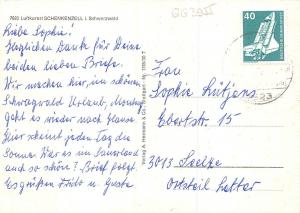 7623 Luftkurort SCHENKENZELL i. Schwarzwald
Liebe Sophie!
Herzlichen Dank für Deine
beiden lieben Briefe.
Wir machen hier im schönen
Schwarzwald Urlaub, Montag
geht es wieder nach Hause
Hier scheint jeden Tag die
Sonne. War es im Sauerland
auch so schön? Brief folgt.
Es grüßen Frido u. Gusta
40
Frau
Sophie
Ebertstr. 15
3013 Seelze
Ortsteil Letter